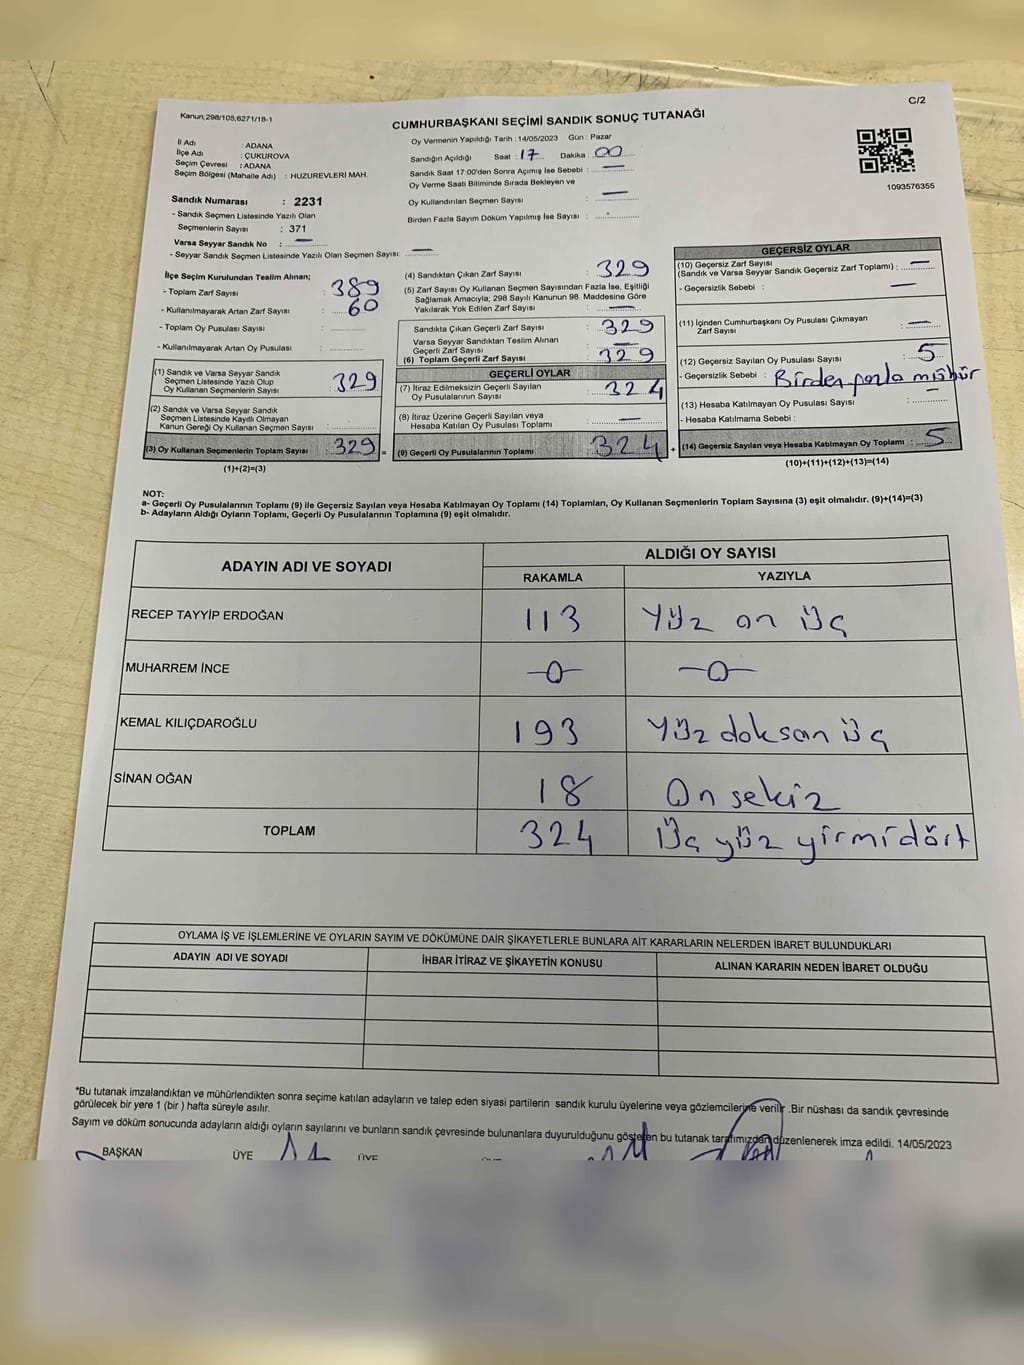 Kanun;298/105,6271/18-1
C/2
CUMHURBAŞKANI SEÇİMİ SANDIK SONUÇ TUTANAĞI
İl Adı : ADANA
İlçe Adı : ÇUKUROVA
Seçim Çevresi : ADANA
Seçim Bölgesi (Mahalle Adı) : HUZUREVLERİ MAH.
Oy Vermenin Yapıldığı Tarih : 14/05/2023 Gün : Pazar
Sandığın Açıldığı Saat : 17 Dakika : 00
Sandık Saat 17:00'den Sonra Açımış İse Sebebi : —
Oy Verme Saati Bitiminde Sırada Bekleyen ve
Oy Kullandırılan Seçmen Sayısı : —
Birden Fazla Sayım Döküm Yapılmış İse Sayısı :
1093576355
Sandık Numarası : 2231
- Sandık Seçmen Listesinde Yazılı Olan
Seçmenlerin Sayısı : 371
Varsa Seyyar Sandık No : —
- Seyyar Sandık Seçmen Listesinde Yazılı Olan Seçmen Sayısı: —
İlçe Seçim Kurulundan Teslim Alınan;
- Toplam Zarf Sayısı : 389
- Kullanılmayarak Artan Zarf Sayısı : 60
- Toplam Oy Pusulası Sayısı :
- Kullanılmayarak Artan Oy Pusulası :
(1) Sandık ve Varsa Seyyar Sandık
Seçmen Listesinde Yazılı Olup
Oy Kullanan Seçmenlerin Sayısı : 329
(2) Sandık ve Varsa Seyyar Sandık
Seçmen Listesinde Kayıtlı Olmayan
Kanun Gereği Oy Kullanan Seçmen Sayısı :
(3) Oy Kullanan Seçmenlerin Toplam Sayısı : 329 =
(1)+(2)=(3)
(4) Sandıktan Çıkan Zarf Sayısı : 329
(5) Zarf Sayısı Oy Kullanan Seçmen Sayısından Fazla İse, Eşitliği
Sağlamak Amacıyla; 298 Sayılı Kanunun 98. Maddesine Göre
Yakılarak Yok Edilen Zarf Sayısı : —
Sandıkta Çıkan Geçerli Zarf Sayısı : 329
Varsa Seyyar Sandıktan Teslim Alınan
Geçerli Zarf Sayısı : —
(6) Toplam Geçerli Zarf Sayısı : 329
GEÇERLİ OYLAR
(7) İtiraz Edilmeksizin Geçerli Sayılan
Oy Pusulalarının Sayısı : 324
(8) İtiraz Üzerine Geçerli Sayılan veya
Hesaba Katılan Oy Pusulası Toplamı : —
(9) Geçerli Oy Pusulalarının Toplamı : 324 +
GEÇERSİZ OYLAR
(10) Geçersiz Zarf Sayısı
(Sandık ve Varsa Seyyar Sandık Geçersiz Zarf Toplamı) : —
- Geçersizlik Sebebi : —
(11) İçinden Cumhurbaşkanı Oy Pusulası Çıkmayan
Zarf Sayısı : —
(12) Geçersiz Sayılan Oy Pusulası Sayısı : 5
- Geçersizlik Sebebi : Birden fazla mühür
(13) Hesaba Katılmayan Oy Pusulası Sayısı : —
- Hesaba Katılmama Sebebi :
(14) Geçersiz Sayılan veya Hesaba Katılmayan Oy Toplamı : 5
(10)+(11)+(12)+(13)=(14)
NOT:
a- Geçerli Oy Pusulalarının Toplamı (9) ile Geçersiz Sayılan veya Hesaba Katılmayan Oy Toplamı (14) Toplamları, Oy Kullanan Seçmenlerin Toplam Sayısına (3) eşit olmalıdır. (9)+(14)=(3)
b- Adayların Aldığı Oyların Toplamı, Geçerli Oy Pusulalarının Toplamına (9) eşit olmalıdır.
ADAYIN ADI VE SOYADI ALDIĞI OY SAYISI
RAKAMLA YAZIYLA
RECEP TAYYİP ERDOĞAN 113 Yüz on üç
MUHARREM İNCE -0- -0-
KEMAL KILIÇDAROĞLU 193 Yüz doksan üç
SİNAN OĞAN 18 On sekiz
TOPLAM 324 Üç yüz yirmidört
OYLAMA İŞ VE İŞLEMLERİNE VE OYLARIN SAYIM VE DÖKÜMÜNE DAİR ŞİKAYETLERLE BUNLARA AİT KARARLARIN NELERDEN İBARET BULUNDUKLARI
ADAYIN ADI VE SOYADI İHBAR İTİRAZ VE ŞİKAYETİN KONUSU ALINAN KARARIN NEDEN İBARET OLDUĞU
*Bu tutanak imzalandıktan ve mühürlendikten sonra seçime katılan adayların ve talep eden siyasi partilerin sandık kurulu üyelerine veya gözlemcilerine verilir .Bir nüshası da sandık çevresinde
görülecek bir yere 1 (bir ) hafta süreyle asılır.
Sayım ve döküm sonucunda adayların aldığı oyların sayılarını ve bunların sandık çevresinde bulunanlara duyurulduğunu gösteren bu tutanak tarafımızdan düzenlenerek imza edildi. 14/05/2023
BAŞKAN ÜYE ÜYE